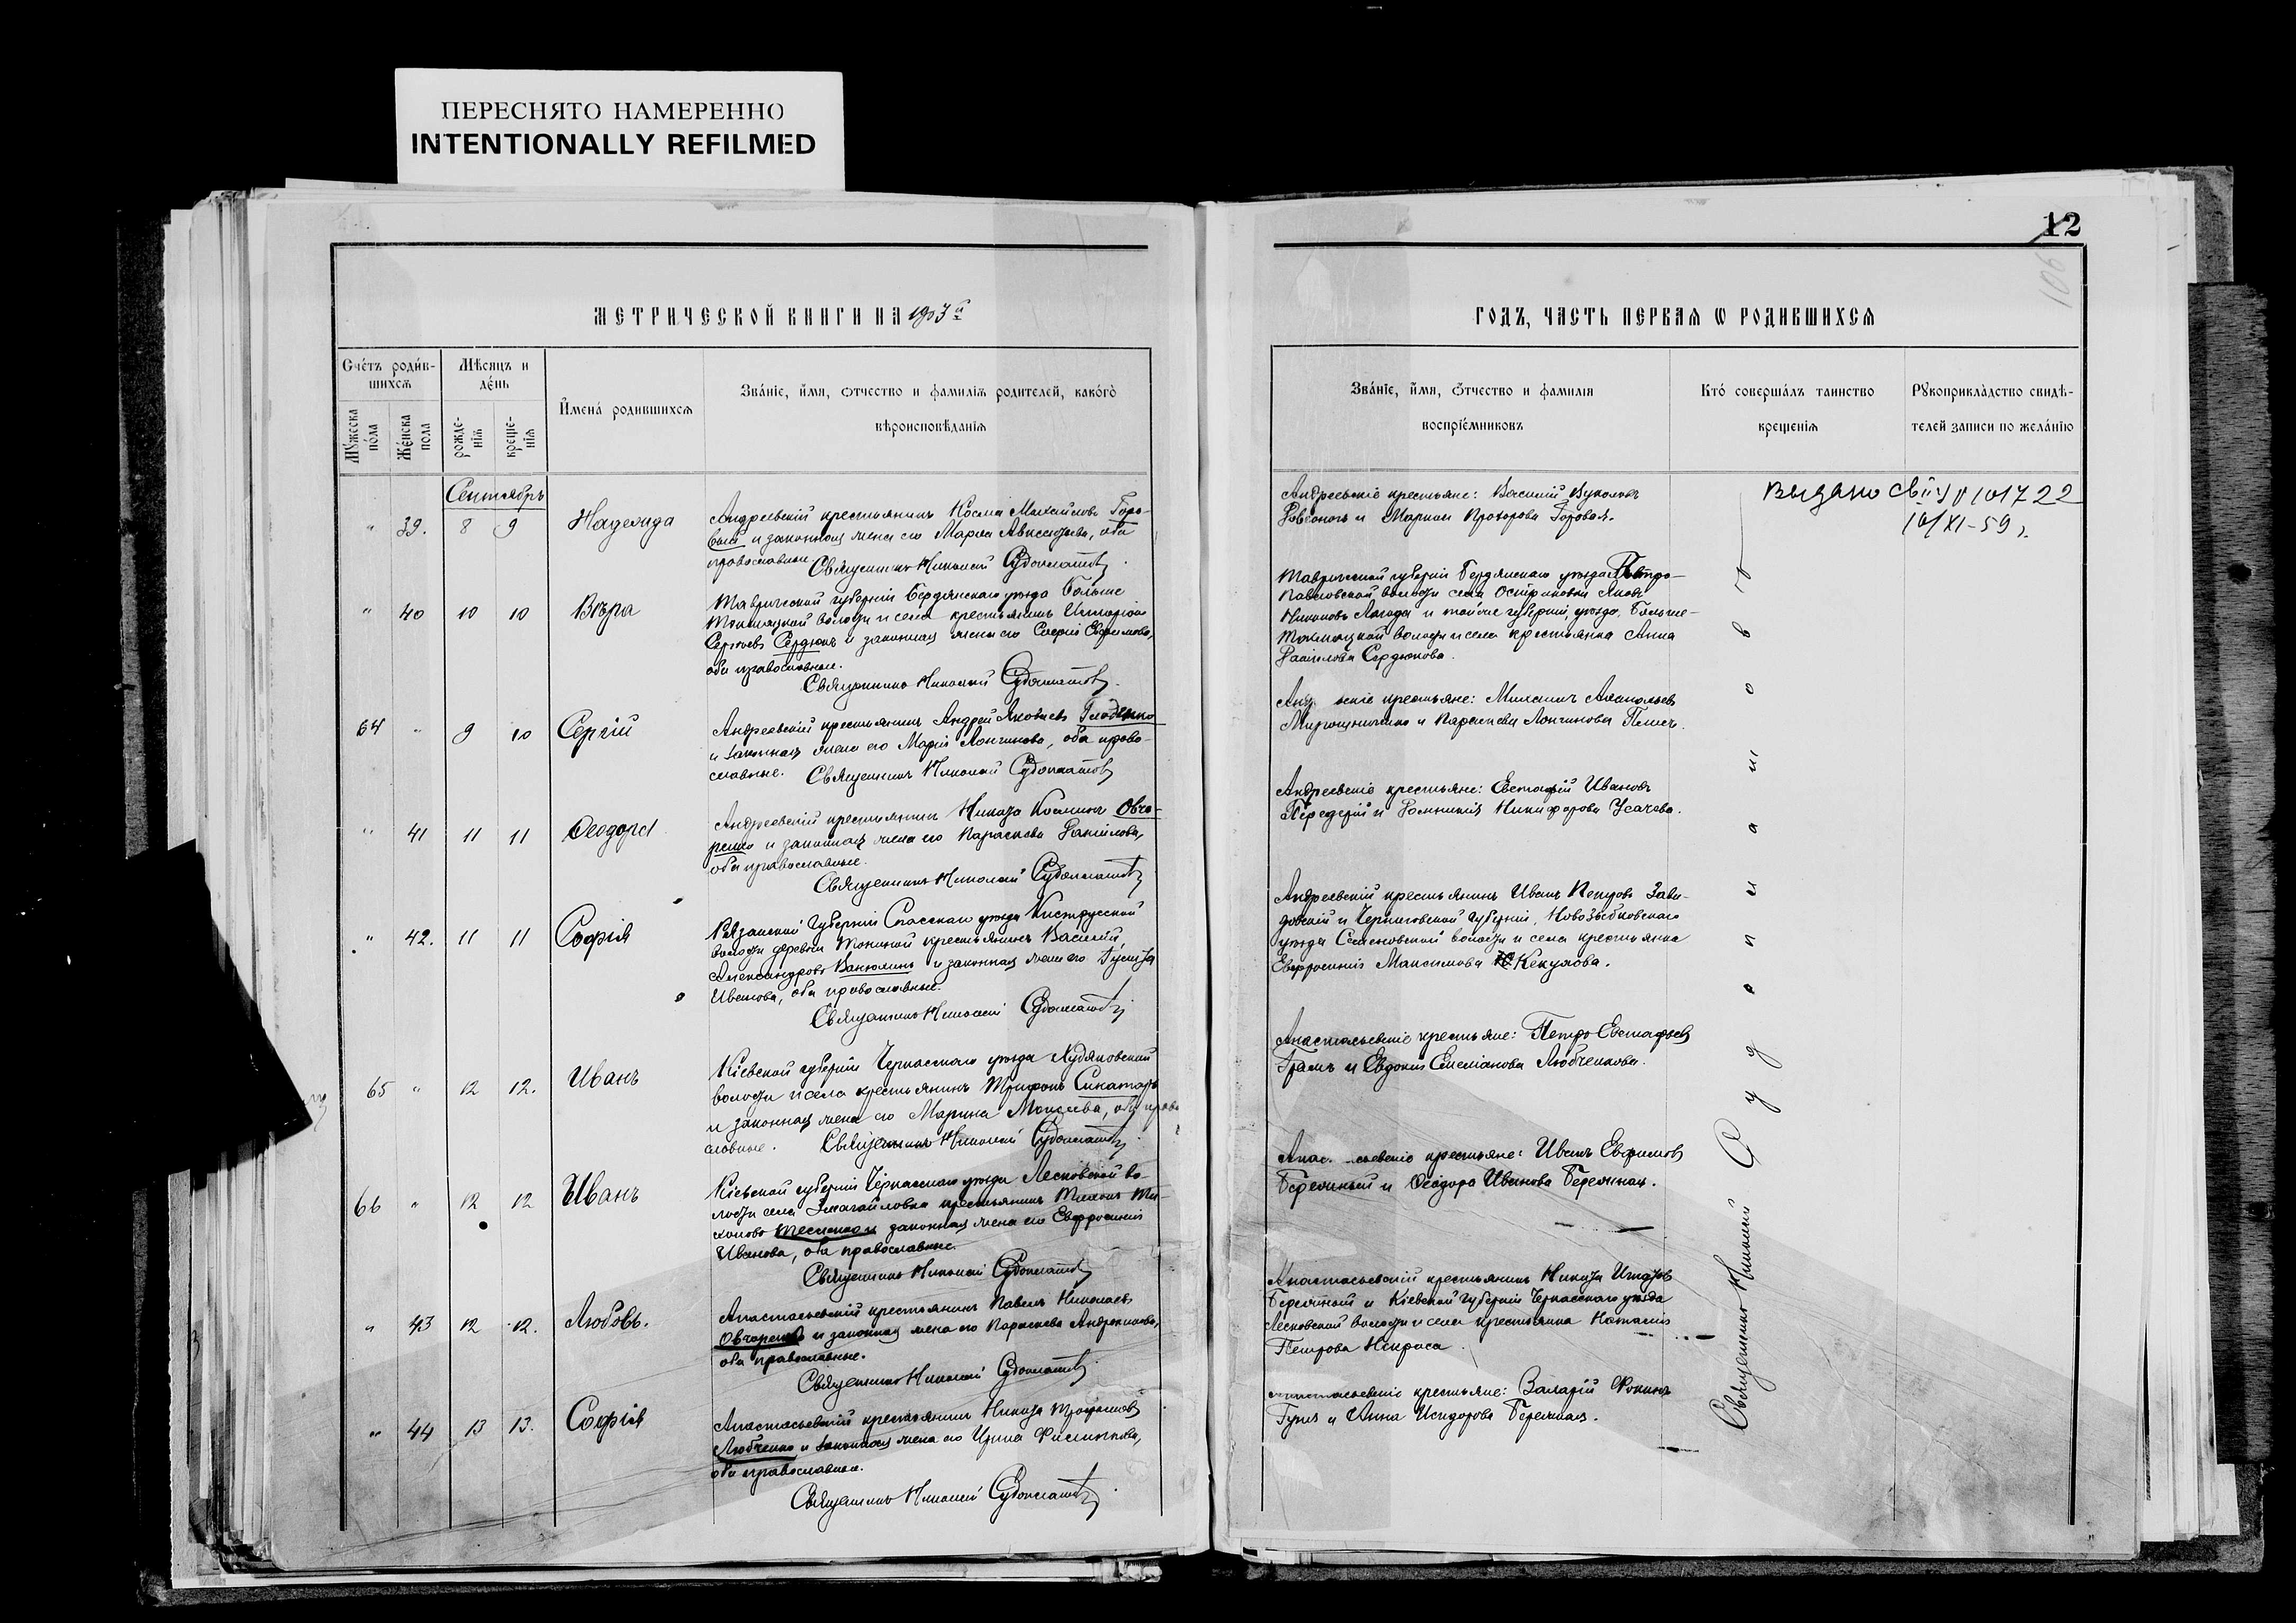 ПЕРЕСНЯТО НАМЕРЕННО
INTENTIONALLY REFILMED
12
106
МЕТРИЧЕСКОЙ КНИГИ НА 1903й
Счетъ родив-
шихся
Мѣсяцъ и
день
Имена родившихся
Званіе, имя, отчество и фамилія родителей, какого
вѣроисповѣданія
Мужеска
пола
Женска
пола
рожде-
нія
креще-
нія
Сентябрь
" 39. 8 9 Надежда
Андреевскій крестьянинъ Косма Михайловъ Горо-
вый и законная жена его Марѳа, оба
православные Священникъ Николай Судоплатовъ
" 40 10 10 Вѣра
Таврической губерніи Бердянскаго уѣзда Больше
Токмацкой волости и села крестьянинъ
Сергіевъ Сердюкъ и законная жена его Софія Ефимова,
оба православные.
Священникъ Николай Судоплатовъ
64 " 9 10 Сергій
Андреевскій крестьянинъ Андрей Яковлевъ
и законная жена его Марія Лонгинова, оба право-
славные. Священникъ Николай Судоплатовъ
" 41 11 11 Ѳеодора
Андреевскій крестьянинъ Никита Косминъ Овча-
ренко и законная жена его Параскева Даніилова,
оба православные.
Священникъ Николай Судоплатовъ
" 42. 11 11 Софія
Рязанской губерніи Спасскаго уѣзда Киструсской
волости деревни крестьянинъ Василій
Александровъ Ванюшинъ и законная жена его
Иванова, оба православные.
Священникъ Николай Судоплатовъ
65 " 12 12. Иванъ
Кіевской губерніи Черкасскаго уѣзда Худяковской
волости и села крестьянинъ Трифонъ
и законная жена его Марина Моисеева, оба право
славные. Священникъ Николай Судоплатовъ
66 " 12 12 Иванъ
Кіевской губерніи Черкасскаго уѣзда Лесковской во-
лости села крестьянинъ Тихонъ Ти-
хоновъ законная жена его Евфросинія
Иванова, оба православные.
Священникъ Николай Судоплатовъ
" 43 12 12. Любовь.
Анастасьевскій крестьянинъ Павелъ Николаевъ
Овчаренко и законная жена его Параскева Андроникова,
оба православные.
Священникъ Николай Судоплатовъ
" 44 13 13. Софія
Анастасьевскій крестьянинъ Никита Трофимовъ
Любченко и законная жена его Ирина Филиппова,
оба православные.
Священникъ Николай Судоплатовъ
ГОДЪ, ЧАСТЬ ПЕРВАЯ Ѡ РОДИВШИХСЯ
Званіе, имя, отчество и фамилія
воспріемниковъ
Кто совершалъ таинство
крещенія
Рукоприкладство свидѣ-
телей записи по желанію
Андреевскіе крестьяне: Василій Вуколовъ
и Прохорова Горовая.
Выдано 101722
10/XI-59 г.
Таврической губерніи Бердянскаго уѣзда Петро-
павловской волости села Остриковки Яковъ
Никоновъ Лагода и той же губерніи, уѣзда, Больше-
Токмацкой волости и села крестьянка Анна
Даніилова Сердюкова.
крестьяне: Михаилъ
Мирошниченко и Параскева Лонгинова
Андреевскіе крестьяне: Евстафій Ивановъ
Передерій и Домникія Никифорова Усачева.
Андреевскій крестьянинъ Иванъ Петровъ Зави-
довскій и Черниговской губерніи, Новозыбковскаго
уѣзда Семеновской волости и села крестьянка
Евфросинія Максимова Кекухова.
Анастасьевскіе крестьяне: Петръ Евстафьевъ
и Евдокія Емеліанова Любченкова.
крестьяне: Иванъ Ефимовъ
Бережный и Ѳеодора Иванова Бережная.
Анастасьевскій крестьянинъ Никита
Бережный и Кіевской губерніи Черкасскаго уѣзда
Лесковской волости и села крестьянка Наталія
Петрова Некраса.
крестьяне: Валерій Фокинъ
и Анна Исидорова Бережная.
Священникъ Николай Судоплатовъ